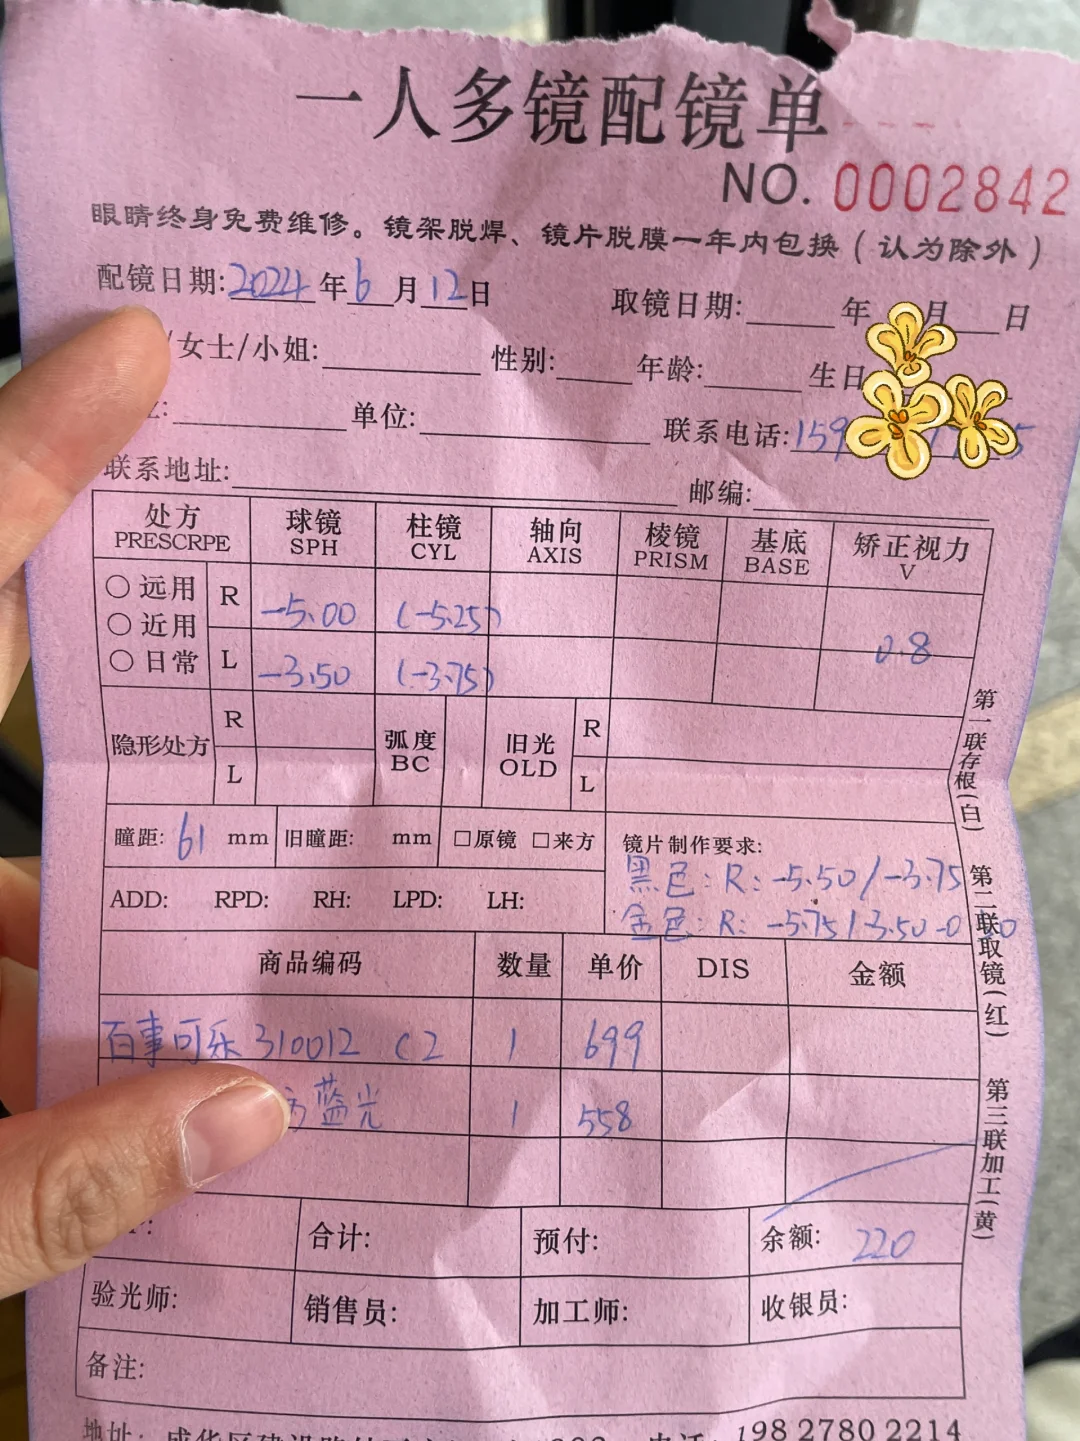 一人多镜配镜单
NO. 0002842
眼睛终身免费维修。镜架脱焊、镜片脱膜一年内包换（认为除外）
配镜日期:2024年6月12日 取镜日期: 年 月 日
/女士/小姐: 性别: 年龄: 生日
单位: 联系电话:159 5
联系地址: 邮编:
处方 PRESCRPE 球镜 SPH 柱镜 CYL 轴向 AXIS 棱镜 PRISM 基底 BASE 矫正视力 V
○ 远用 R -5.00 (-5.25)
○ 近用 0.8
○ 日常 L -3.50 (-3.75)
隐形处方 R L 弧度 BC 旧光 OLD R L
瞳距: 61 mm 旧瞳距: mm □原镜 □来方 镜片制作要求:
黑色: R: -5.50/-3.75
ADD: RPD: RH: LPD: LH:
金色: R: -5.75/-3.50
商品编码 数量 单价 DIS 金额
百事可乐 310012 C2 1 699
防蓝光 1 558
合计: 预付: 余额: 220
验光师: 销售员: 加工师: 收银员:
备注:
电话: 198 2780 2214
第一联存根(白)
第二联取镜(红)
第三联加工(黄)